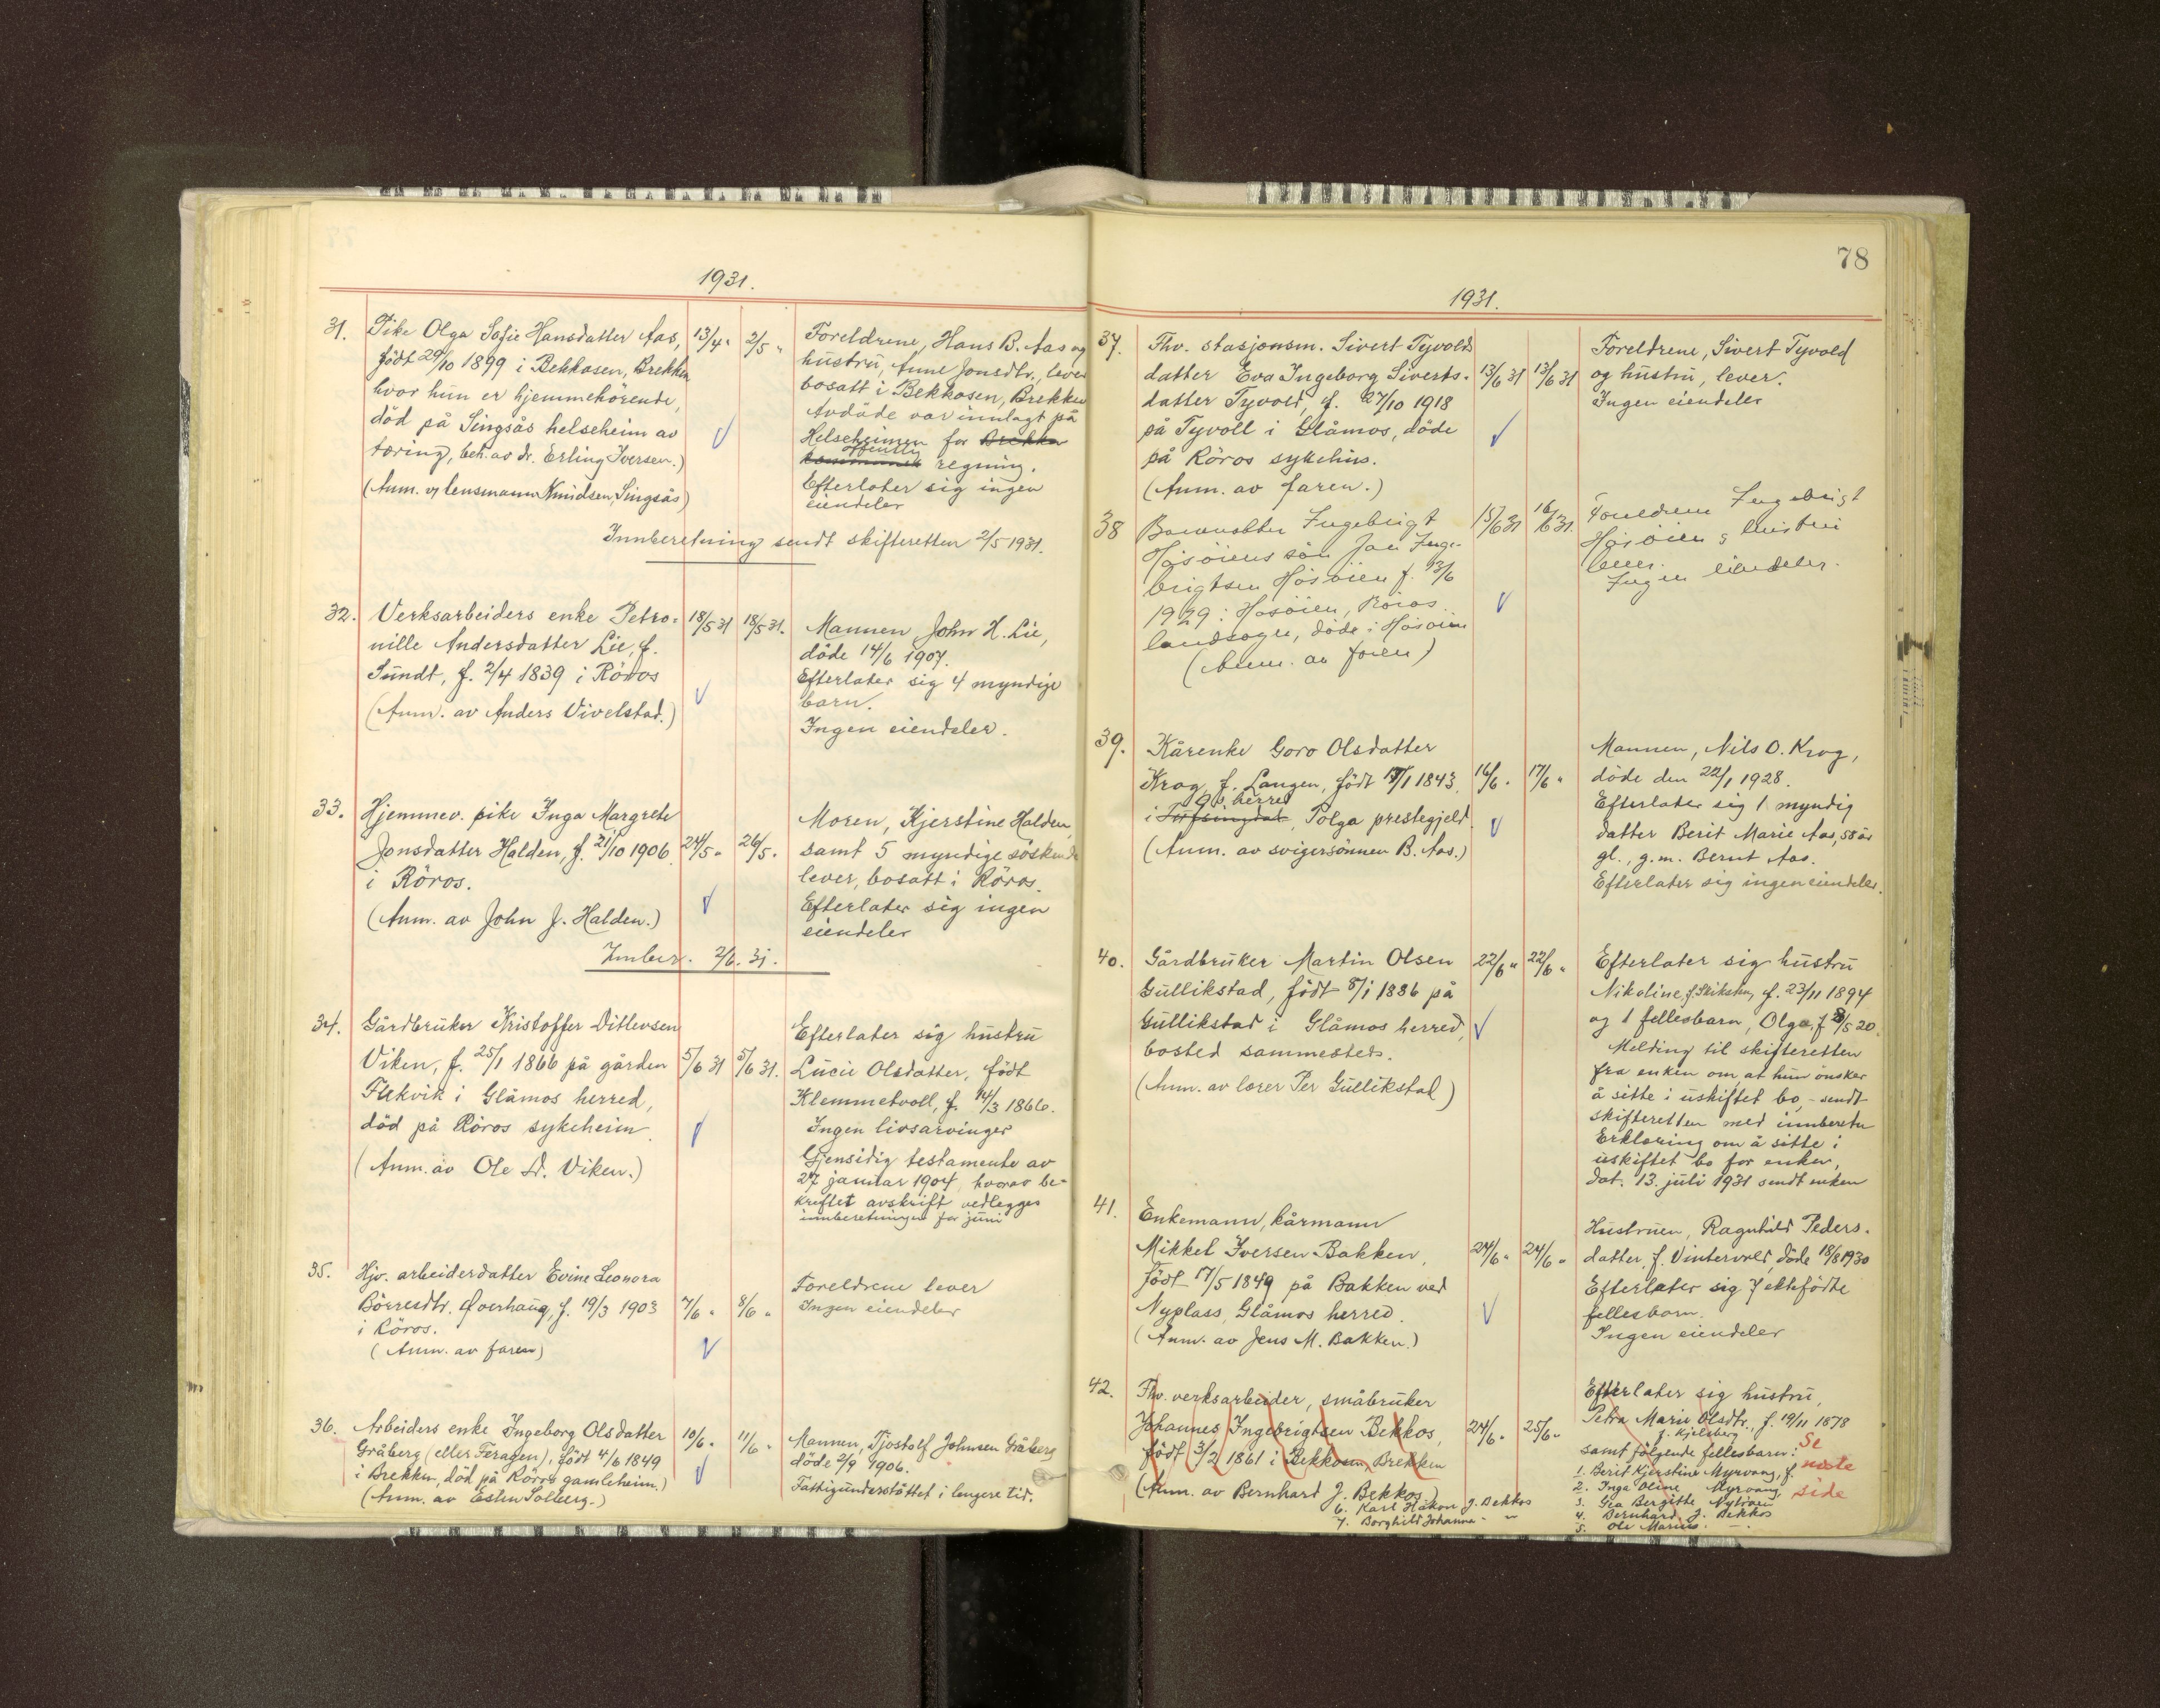 1931.
31. Pike Olga Sofie Hansdatter Aas, 13/4 " 2/5 "
født 29/10 1899 i Bekkosen, Brekken
hvor hun er hjemmehörende,
död på Singsås helseheim av
töring, beh. av dr. Erling Iversen.)
(Anm. v/ lensmann Knudsen, Singsås)
Foreldrene, Hans B. Aas og
hustru, Anne Jonsdtr., lever
bosatt i Bekkosen, Brekken
Avdöde var innlagt på
Helseheimen for Brekken
offentlig
kommunes regning.
Efterlater sig ingen
eiendeler
Innberetning sendt skifteretten 2/5 1931.
32. Verksarbeiders enke Petro= 18/5 31 18/5 31.
nille Andersdatter Lie, f.
Sundt, f. 2/4 1839 i Röros
(Anm. av Anders Vivelstad.)
Mannen John H. Lie,
döde 14/6 1907.
Efterlater sig 4 myndige
barn.
Ingen eiendeler.
33. Hjemmev. pike Inga Margrete
Jonsdatter Halden, f. 21/10 1906 24/5 " 26/5 "
i Röros.
(Anm. av John J. Halden.)
Moren, Kjerstine Halden,
samt 5 myndige söskende
lever, bosatt i Röros.
Efterlater sig ingen
eiendeler
Innber. 2/6. 31.
34. Gårdbruker Kristoffer Ditlevsen
Viken, f. 25/1 1866 på gården 5/6 31 5/6 31.
Flekvik i Glåmos herred,
död på Röros sykeheim.
(Anm. av Ole D. Viken.)
Efterlater sig hustru
Lucie Olsdatter, født
Klemmetvoll, f. 14/3 1866.
Ingen livsarvinger
Gjensidig testamente av
27 januar 1904, hvorav be=
kreftet avskrift vedlegges
innberetningen for juni
35. Hjv. arbeiderdatter Evine Leonora
Börresdtr. Overhaug, f. 19/3 1903 7/6 " 8/6 "
i Röros.
(Anm. av faren)
Foreldrene lever
Ingen eiendeler
36. Arbeiders enke Ingeborg Olsdatter 10/6 " 11/6 "
Gråberg (eller Feragen), født 4/6 1849
i Brekken, död på Röros gamleheim.)
(Anm. av Esten Solberg.)
Mannen, Tjostolf Johnsen Gråberg
döde 2/9 1906.
Fattigunderstöttet i lengere tid.
78
1931.
37. Fhv. stasjonsm. Sivert Tyvolds
datter Eva Ingeborg Siverts- 13/6 31 13/6 31
datter Tyvold, f. 27/10 1918
på Tyvoll i Glåmos, döde
på Röros sykehus.
(Anm. av faren.)
Foreldrene, Sivert Tyvold
og hustru, lever.
Ingen eiendeler
38 Ingebrigt 15/6 31 16/6 31.
Høsöiens sön Inge-
brigtsen Høsöien f. 13/6
1929 i Høsöien, Röros
landsogn, döde i Høsöien
(Anm. av faren)
Foreldrene Ingebrigt
Høsöien & hustru
lever.
Ingen eiendeler.
39. Kårenke Goro Olsdatter
Krog, f. Langen, födt 17/1 1843, 16/6 " 17/6 "
Os herred
i Tufsingdal, Tolga prestegjeld.
(Anm. av svigersönnen B. Aas.)
Mannen, Nils O. Krog,
döde den 22/1 1928.
Efterlater sig 1 myndig
datter Berit Marie Aas, 58 år
gl., g.m. Bernt Aas.
Efterlater sig ingen eiendeler.
40. Gårdbruker Martin Olsen 22/6 " 22/6 "
Gullikstad, födt 8/1 1886 på
Gullikstad i Glåmos herred,
bosted sammesteds.
(Anm. av lærer Per Gullikstad)
Efterlater sig hustru
Nikoline, f. 23/11 1894
og 1 fellesbarn, Olga, f. 8/5 20.
Melding til skifteretten
fra enken om at hun önsker
å sitte i uskiftet bo, - sendt
skifteretten med innberetn
Erklæring om å sitte i
uskiftet bo for enken,
dat. 13. juli 1931 sendt enken
41. Enkemann, kårmann
Mikkel Iversen Bakken, 24/6 " 24/6 "
födt 17/5 1849 på Bakken ved
Nyplass, Glåmos herred.
(Anm. av Jens M. Bakken.)
Hustruen, Ragnhild Peders-
datter, f. Vintervold, döde 18/8 1930
Efterlater sig 7 ektefödte
fellesbarn.
Ingen eiendeler
42. Fhv. verksarbeider, småbruker
Johannes Ingebrigtsen Bekkos, 24/6 " 25/6 "
födt 3/2 1861 i Bekkosen, Brekken
(Anm. av Bernhard J. Bekkos)
6. Karl Håkon J. Bekkos
7. Borghild Johanne - "
Efterlater sig hustru,
Petra Marie Olsdtr., f. 19/11 1878
f. Kjelsberg
samt fölgende fellesbarn: Se
1. Berit Kjerstine Myrvang, f. neste
2. Inga Oline Myrvang, side
3. Gea Bergitte Nytröen
4. Bernhard J. Bekkos
5. Ole Marius - " -